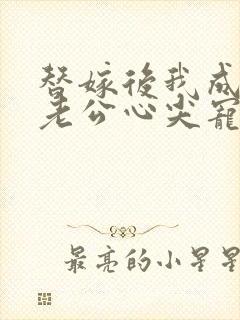 替嫁後我成
老公心尖寵
最亮的小星星